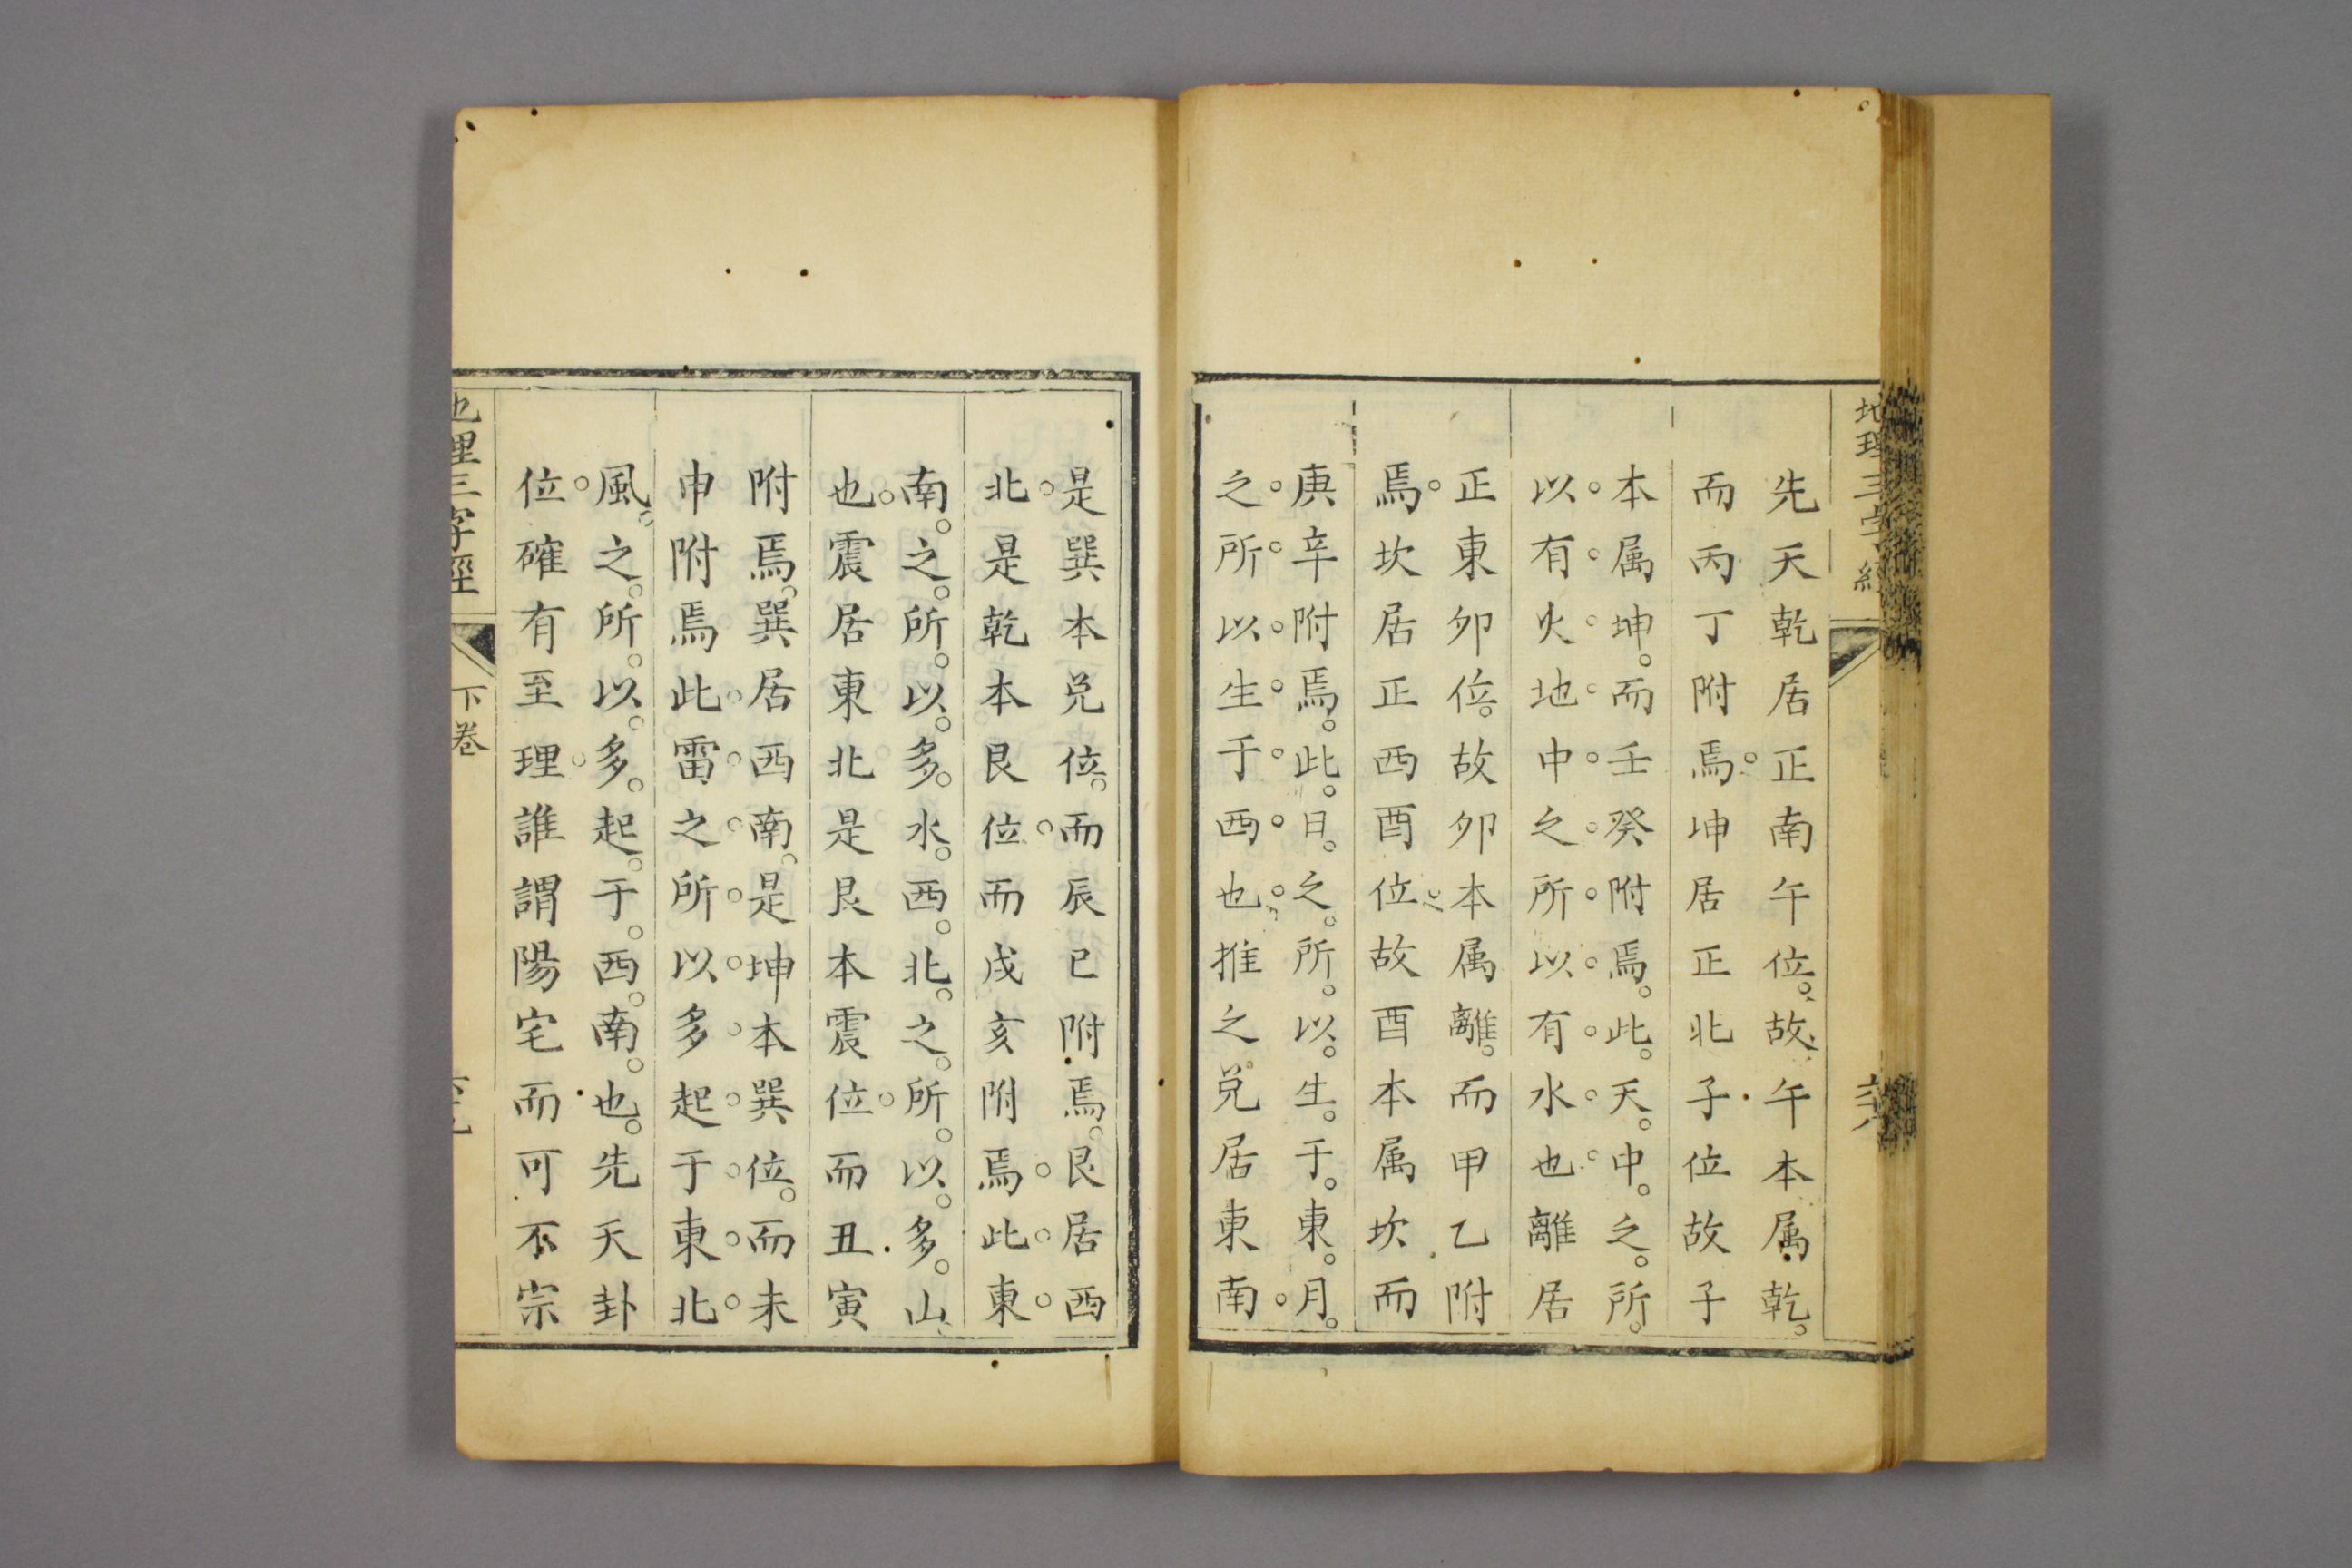 地理三字經
六八
先天乾居正南午位故午本属乾
而丙丁附焉坤居正北子位故子
本属坤而壬癸附焉此天中之所
以有火地中之所以有水也離居
正東卯位故卯本属離而甲乙附
焉坎居正西酉位故酉本属坎而
庚辛附焉此日之所以生于東月
之所以生于西也推之兌居東南
是巽本兌位而辰巳附焉艮居西
北是乾本艮位而戌亥附焉此東
南之所以多水西北之所以多山
也震居東北是艮本震位而丑寅
附焉巽居西南是坤本巽位而未
申附焉此雷之所以多起于東北
風之所以多起于西南也先天卦
位確有至理誰謂陽宅而可不宗
地理三字經
下卷